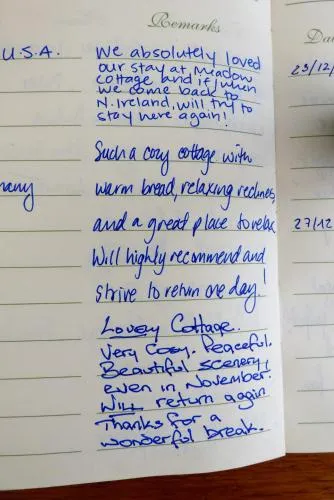 Remarks
Da
U.S.A.
We absolutely loved
our stay at Meadow
Cottage and if/when
we come back to
N.Ireland, will try to
stay here again!
23/12/
Such a cozy cottage with
many
warm bread, relaxing recliners,
and a great place to relax
27/12
Will highly recommend and
strive to return one day!
Lovely Cottage.
Very Cosy. Peaceful.
Beautiful scenery,
even in November.
Will return again
Thanks for a
wonderful break.